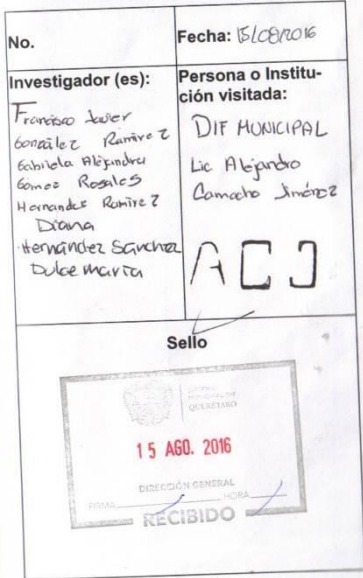 No.
Fecha: 15/08/2016
Investigador (es):
Francisco Javier
González Ramírez
Gabriela Alejandra
Gomez Rosales
Hernandez Ramirez
Diana
Hernández Sánchez
Dulce María
Persona o Institu-
ción visitada:
DIF MUNICIPAL
Lic Alejandro
Camacho Jiménez
ACJ
Sello
MUNICIPAL DE
QUERÉTARO
15 AGO. 2016
DIRECCIÓN GENERAL
FIRMA HORA
RECIBIDO